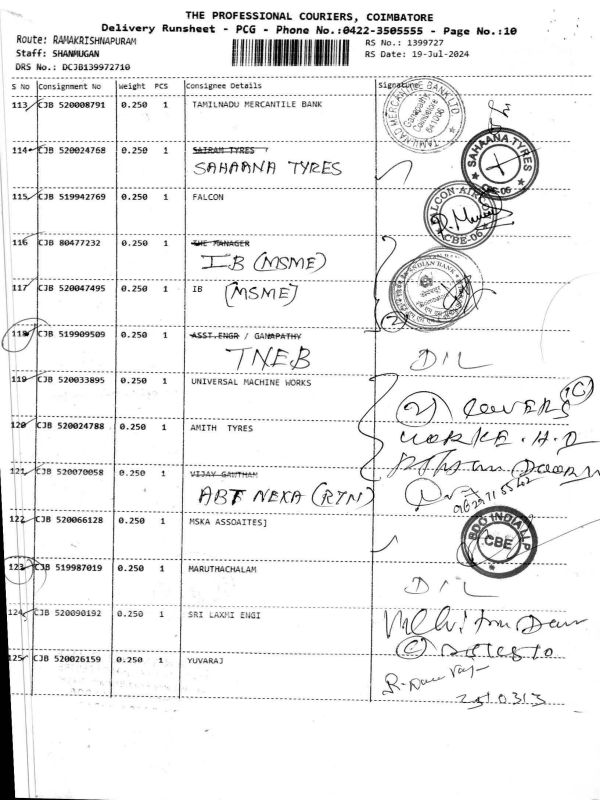 THE PROFESSIONAL COURIERS, COIMBATORE
Delivery Runsheet - PCG - Phone No.:0422-3505555 - Page No.:10
Route: RAMAKRISHNAPURAM RS No.: 1399727
Staff: SHANMUGAN RS Date: 19-Jul-2024
DRS No.: DCJB139972710
S No Consignment No Weight PCS Consignee Details Signature
113 CJB 520008791 0.250 1 TAMILNADU MERCANTILE BANK
TAMILNAD MERCANTILE BANK LTD.
Ganapathy
Coimbatore
641006
114 CJB 520024768 0.250 1 SAIRAM TYRES
SAHAANA TYRES
SAHAANA TYRES
CBE-06
115 CJB 519942769 0.250 1 FALCON
CBE-06
116 CJB 80477232 0.250 1 THE MANAGER
IB (MSME)
INDIAN BANK
117 CJB 520047495 0.250 1 IB
[MSME]
(2)
118 CJB 519909509 0.250 1 ASST.ENGR / GANAPATHY
TNEB
D/L
119 CJB 520033895 0.250 1 UNIVERSAL MACHINE WORKS
(2) COVERS
120 CJB 520024788 0.250 1 AMITH TYRES
121 CJB 520070058 0.250 1 VIJAY GAUTHAM
ABT NEXA (RTN)
122 CJB 520066128 0.250 1 MSKA ASSOAITES]
BDO INDIA LLP
CBE
123 CJB 519987019 0.250 1 MARUTHACHALAM
D/L
124 CJB 520090192 0.250 1 SRI LAXMI ENGI
125 CJB 520026159 0.250 1 YUVARAJ
2510313